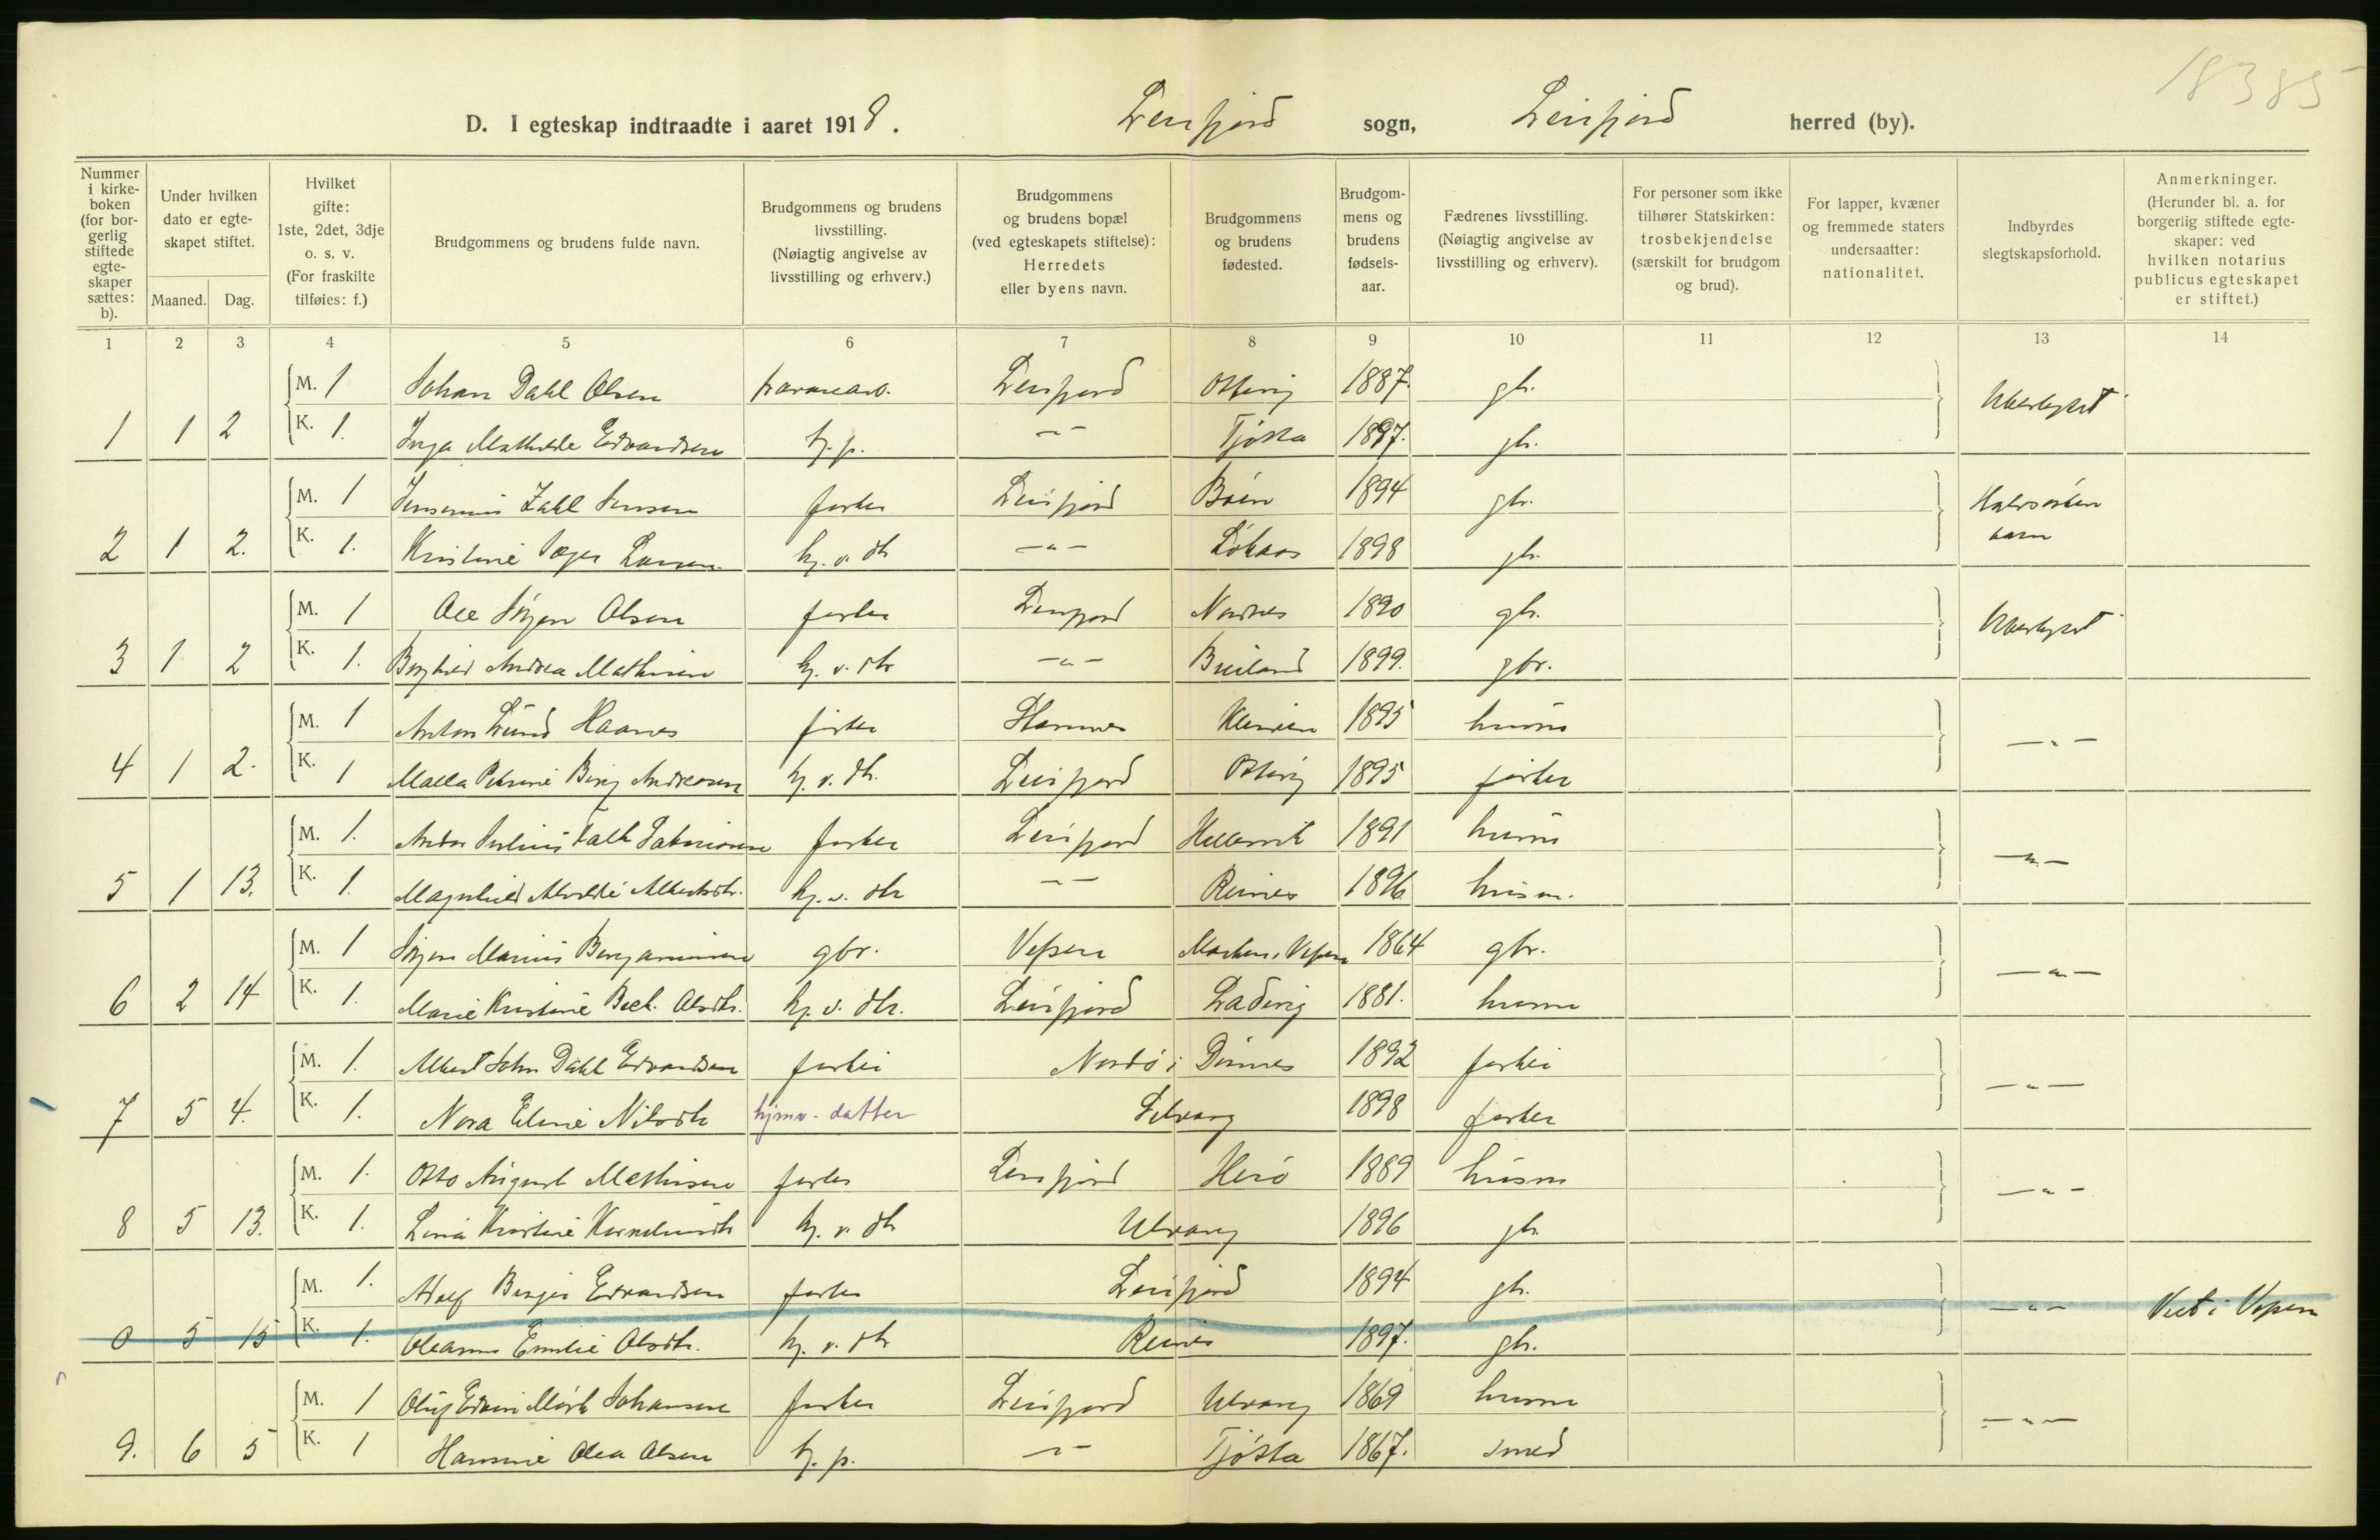 18385
D. I egteskap indtraadte i aaret 1918. Leirfjord sogn, Leirfjord herred (by).
Nummer i kirkeboken (for borgerlig stiftede egteskaper sættes: b).
Under hvilken dato er egteskapet stiftet.
Maaned. Dag.
Hvilket gifte: 1ste, 2det, 3dje o. s. v. (For fraskilte tilføies: f.)
Brudgommens og brudens fulde navn.
Brudgommens og brudens livsstilling. (Nøiagtig angivelse av livsstilling og erhverv.)
Brudgommens og brudens bopæl (ved egteskapets stiftelse): Herredets eller byens navn.
Brudgommens og brudens fødested.
Brudgommens og brudens fødselsaar.
Fædrenes livsstilling. (Nøiagtig angivelse av livsstilling og erhverv).
For personer som ikke tilhører Statskirken: trosbekjendelse (særskilt for brudgom og brud).
For lapper, kvæner og fremmede staters undersaatter: nationalitet.
Indbyrdes slegtskapsforhold.
Anmerkninger. (Herunder bl. a. for borgerlig stiftede egteskaper: ved hvilken notarius publicus egteskapet er stiftet.)
1 2 3 4 5 6 7 8 9 10 11 12 13 14
M. 1 Johan Dahl Olsen Leirfjord 1887. gbr. Ubeslegtet
1 1 2 K. 1. Inga Mathilde Edvardsen hj. p. - - Tjøtta 1897. gbr.
M. 1 Jensenius Zahl Jensen fisker Leirfjord Båen 1894 gbr. Halvsøsken barn
2 1 2. K. 1. Kristine Larsen hj. v. dtr -"- 1898 gbr.
M. 1 Ole Jørgen Olsen fisker Leirfjord Nordnes 1890 gbr. Ubeslegtet
3 1 2 K. 1. Borghild Andrea Mathisen hj. v. dtr -"- Breiland 1899. gbr.
M. 1 Anton Lund Haanes fisker Stamnes 1895 husm
4 1 2. K. 1 Malla Petrine Berg Andreasen hj. v. dtr. Leirfjord 1895 fisker -"-
M. 1. Anton Julius Falk fisker Leirfjord Hellesvik 1891 husm
5 1 13. K. 1. Magnhild Albertsdtr. hj. v. dtr - - Reines 1896 husm. -"-
M. 1 Jørgen Marius Benjaminsen gbr. Vefsen Vefsen 1864 gbr.
6 2 14 K. 1. Marie Kristine Bech. Olsdtr. hj. v. dtr. Leirfjord 1881. husm -"-
M. 1. Albert John Dahl Edvardsen fisker Nordvi i Dønnes 1892 fisker
7 5 4. K. 1. Nora Eline Nilsdtr hjmv. datter Ulvang 1898 fisker -"-
M. 1. Otto August Mathisen fisker Leirfjord Herø 1889 husm
8 5 13. K. 1. Lina Kristine Kornelius dtr hj. v. dtr Ulvang 1896 gbr. -"-
M. 1. Adolf Birger Edvardsen fisker Leirfjord 1894 gbr.
0 5 15 K. 1. Oleanna Emilie Olsdtr. hj. v. dtr Reines 1897. gbr. -"- Viet i Vefsen
M. 1 Oluf Edvin Mørk Johansen fisker Leirfjord Ulvang 1869 husm
9. 6 5 K. 1 Hansine Olea Olsen hj. p. - - Tjøtta 1867. smed -"-